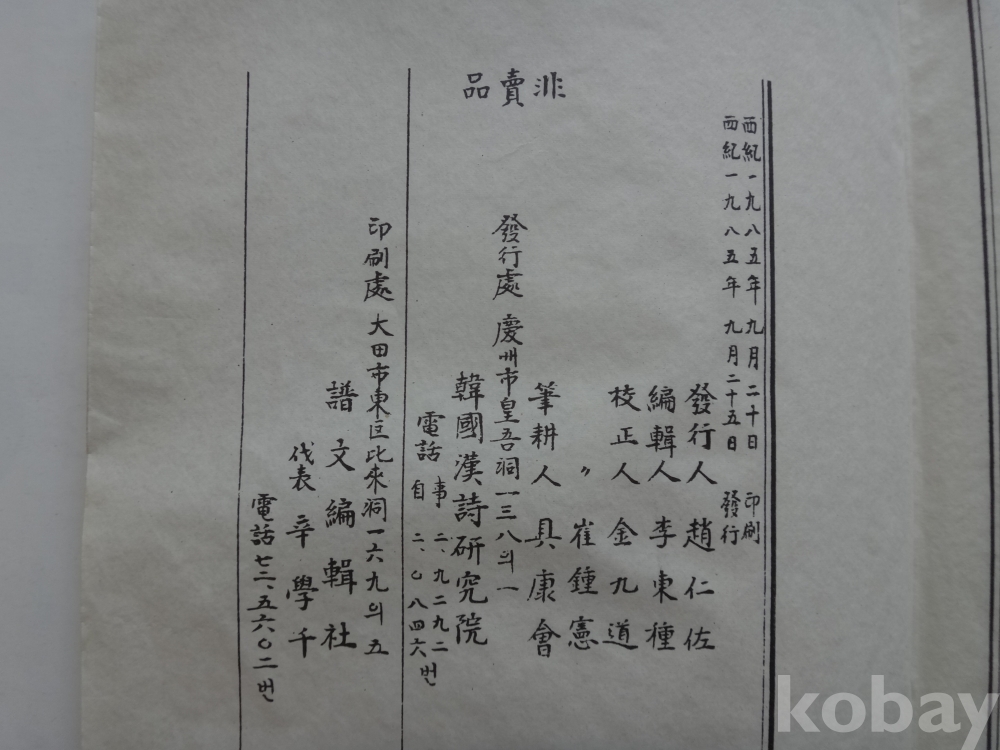 非賣品
西紀一九八五年 九月二十日 印刷
西紀一九八五年 九月二十五日 發行
發行人 趙仁佐
編輯人 李東種
校正人 金九道
〃 崔鍾憲
筆耕人 具康會
發行處 慶州市皇吾洞一三八의一
韓國漢詩研究院
電話 事 二、九二九二
自 二、〇八四六번
印刷處 大田市東区比來洞一六九의五
譜文編輯社
代表 辛學千
電話 七二、五六〇二번
kobay